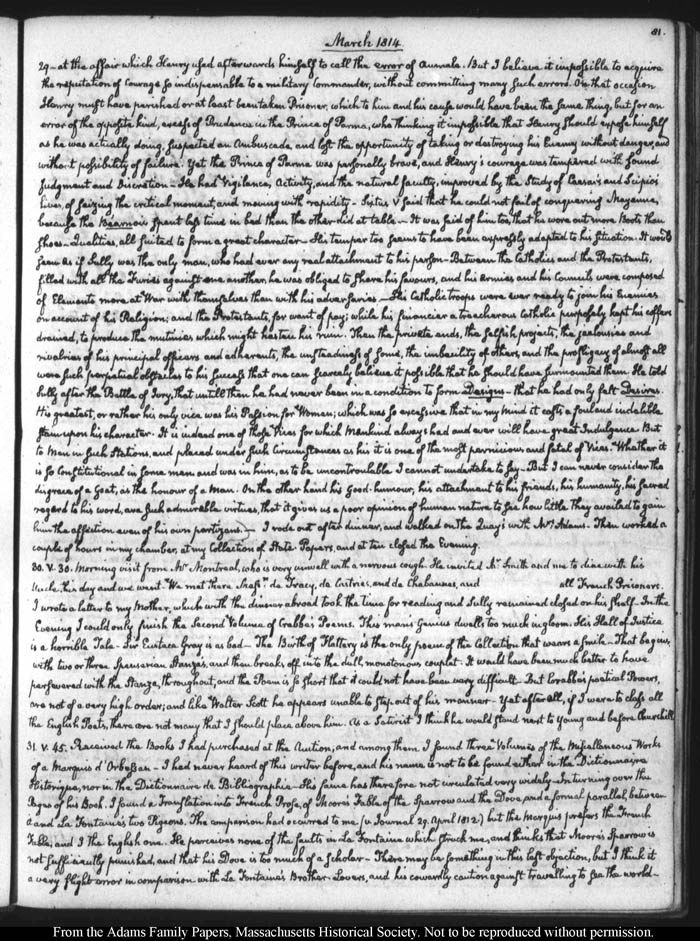 81.
March 1814
29 — at the affair which Henry used afterwards himself to call the error of Aumale. But I believe it impossible to acquire
the reputation of Courage so indispensable to a military Commander, without committing many such errors. On that occasion
Henry must have perished or at least been taken Prisoner, which to him and his cause would have been the same thing, but for an
error of the opposite kind, excess of Prudence in the Prince of Parma, who thinking it impossible that Henry should expose himself
as he was actually doing, suspected an Ambuscade, and lost the opportunity of taking or destroying his Enemy without danger, and
without possibility of failure. Yet the Prince of Parma was personally brave, and Henry's courage was tempered with sound
Judgment and Discretion — He had Vigilance, Activity, and the natural faculty, improved by the Study of Caesar's and Scipio's
Lives, of seizing the critical moment, and moving with rapidity — Sixtus V said that he could not fail of conquering Mayenne,
because the Bearnois spent less time in bed than the other did at table — It was said of him too, that he wore out more Boots than
Shoes — Qualities, all suited to form a great character — His temper too seems to have been expressly adapted to his situation. It would
seem as if Sully was the only man, who had ever any real attachment to his person — Between the Catholics and the Protestants,
filled with all the Furies against one another, he was obliged to share his favours, and his Armies and his Councils were composed
of Elements more at War with themselves than with his adversaries — His Catholic troops were ever ready to join his Enemies
on account of his Religion; and the Protestants, for want of pay; while his financier a treacherous Catholic purposely kept his coffers
drained, to produce the mutinies which might hasten his ruin. Then the private ends, the selfish projects, the jealousies and
rivalries of his principal officers and adherents, the unsteadiness of some, the imbecility of others, and the profligacy of almost all
were such perpetual obstacles to his success that one can scarcely believe it possible that he should have surmounted them. He told
Sully after the Battle of Ivry, that untill then he had never been in a condition to form Designs — that he had only felt Desires.
His greatest, or rather his only vice was his Passion for Women; which was so excessive that in my mind it casts a foul and indelible
stain upon his character. It is indeed one of those Vices for which Mankind always had and ever will have great Indulgence. But
to Men in such Stations, and placed under such Circumstances as his it is one of the most pernicious and fatal of Vices. Whether it
is so Constitutional in some men and was in him, as to be uncontroulable I cannot undertake to say — But I can never consider the
disgrace of a Goat, as the honour of a Man. On the other hand his Good-humour, his attachment to his friends, his humanity, his sacred
regard to his word, are such admirable virtues, that it gives us a poor opinion of human nature to see how little they availed to gain
him the affection even of his own partizans. — I rode out after dinner, and walked on the Quays with Mr Adams. Then worked a
couple of hours in my chamber, at my Collection of State Papers, and at ten closed the Evening.
30. V. 30. Morning visit from Mr Montreal, who is very unwell with a nervous cough. He invited Mr Smith and me to dine with his
Uncle this day and we went. We met there Messrs de Tracy, de Castries, and de Chabannes, and all French Prisoners.
I wrote a letter to my Mother, which with the dinner abroad took the time for reading and Sully remained closed on his shelf — In the
Evening I could only finish the Second Volume of Crabbe's Poems. This man's Genius dwells too much in gloom. His Hall of Justice
is a horrible Tale — Sir Eustace Gray is as bad — The Birth of Flattery is the only poem of the Collection that wears a smile — That begins
with two or three Spenserian Stanzas, and then breaks off into the dull, monotonous couplet. It would have been much better to have
persevered with the Stanza, throughout, and the Poem is so short that it could not have been very difficult. But Crabbe's poetical Powers,
are not of a very high order; and like Walter Scott he appears unable to step out of his manner — Yet after all, if I were to class all
the English Poets, there are not many that I should place above him. As a Satirist I think he would stand next to Young and before Churchill.
31. V. 45. Received the Books I had purchased at the Auction; and among them I found three Volumes of the Miscellaneous Works
of a Marquis d'Orbessan — I had never heard of this writer before, and his name is not to be found either in the Dictionnaire
Historique, nor in the Dictionnaire de Bibliographie — His fame has therefore not circulated very widely — In turning over the
Pages of his Book. I found a Translation into French Prose, of Moore's Fable of the Sparrow and the Dove, and a formal parallel, between
it and La Fontaine's two Pigeons. The comparison had occurred to me (v. Journal 29. April 1812.) but the Marquis prefers the French
Fable, and I the English one. He perceives none of the faults in La Fontaine which struck me, and thinks that Moore's Sparrow is
not sufficiently punished, and that his Dove is too much of a Scholar — There may be something in this last objection, but I think it
a very slight error in comparison with La Fontaine's Brother-Lovers, and his cowardly caution against travelling to see the world —
From the Adams Family Papers, Massachusetts Historical Society. Not to be reproduced without permission.